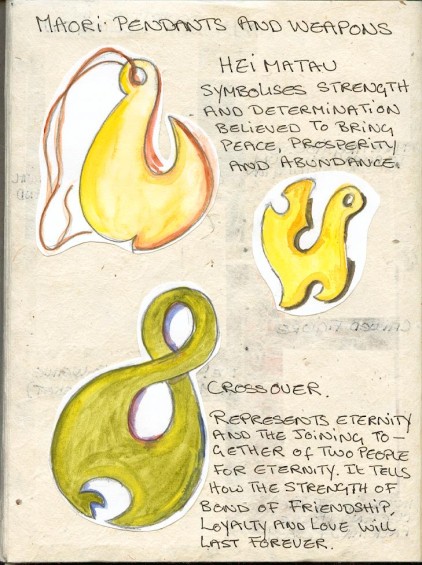 MAORI PENDANTS AND WEAPONS
HEI MATAU
SYMBOLISES STRENGTH
AND DETERMINATION
BELIEVED TO BRING
PEACE, PROSPERITY
AND ABUNDANCE.
CROSSOVER.
REPRESENTS ETERNITY
AND THE JOINING TO-
GETHER OF TWO PEOPLE
FOR ETERNITY. IT TELLS
HOW THE STRENGTH OF
BOND OF FRIENDSHIP,
LOYALTY AND LOVE WILL
LAST FOREVER.